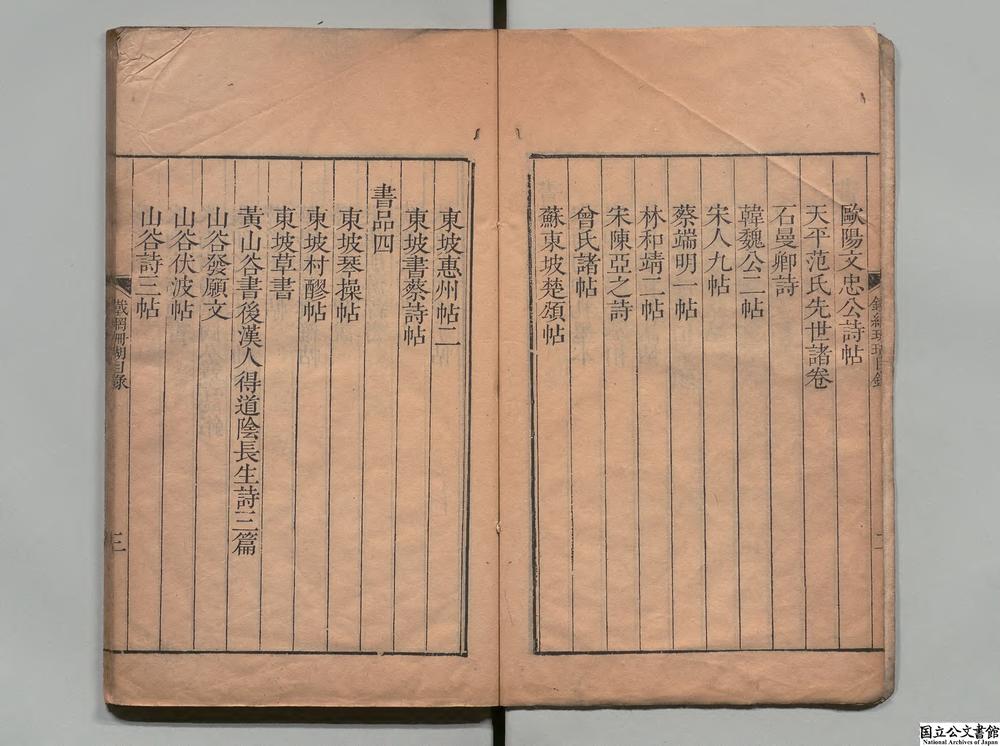 歐陽文忠公詩帖
天平范氏先世諸卷
石曼卿詩
韓魏公二帖
宋人九帖
蔡端明一帖
林和靖二帖
宋陳亞之詩
曾氏諸帖
蘇東坡楚頌帖
東坡惠州帖二
東坡書蔡詩帖
書品四
東坡琴操帖
東坡村醪帖
東坡草書
黃山谷書後漢人得道陰長生詩三篇
山谷發願文
山谷伏波帖
山谷詩三帖
鐵網珊瑚目錄
三
国立公文書館
National Archives of Japan